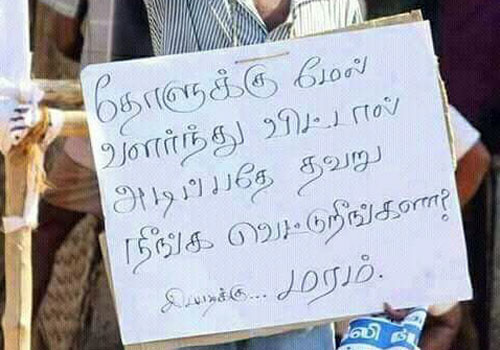 தோளுக்கு மேல்
வளர்ந்து விட்டால்
அடிப்பதே தவறு
நீங்க வெட்டுறீங்களா?
இப்படிக்கு... மரம்.
லி